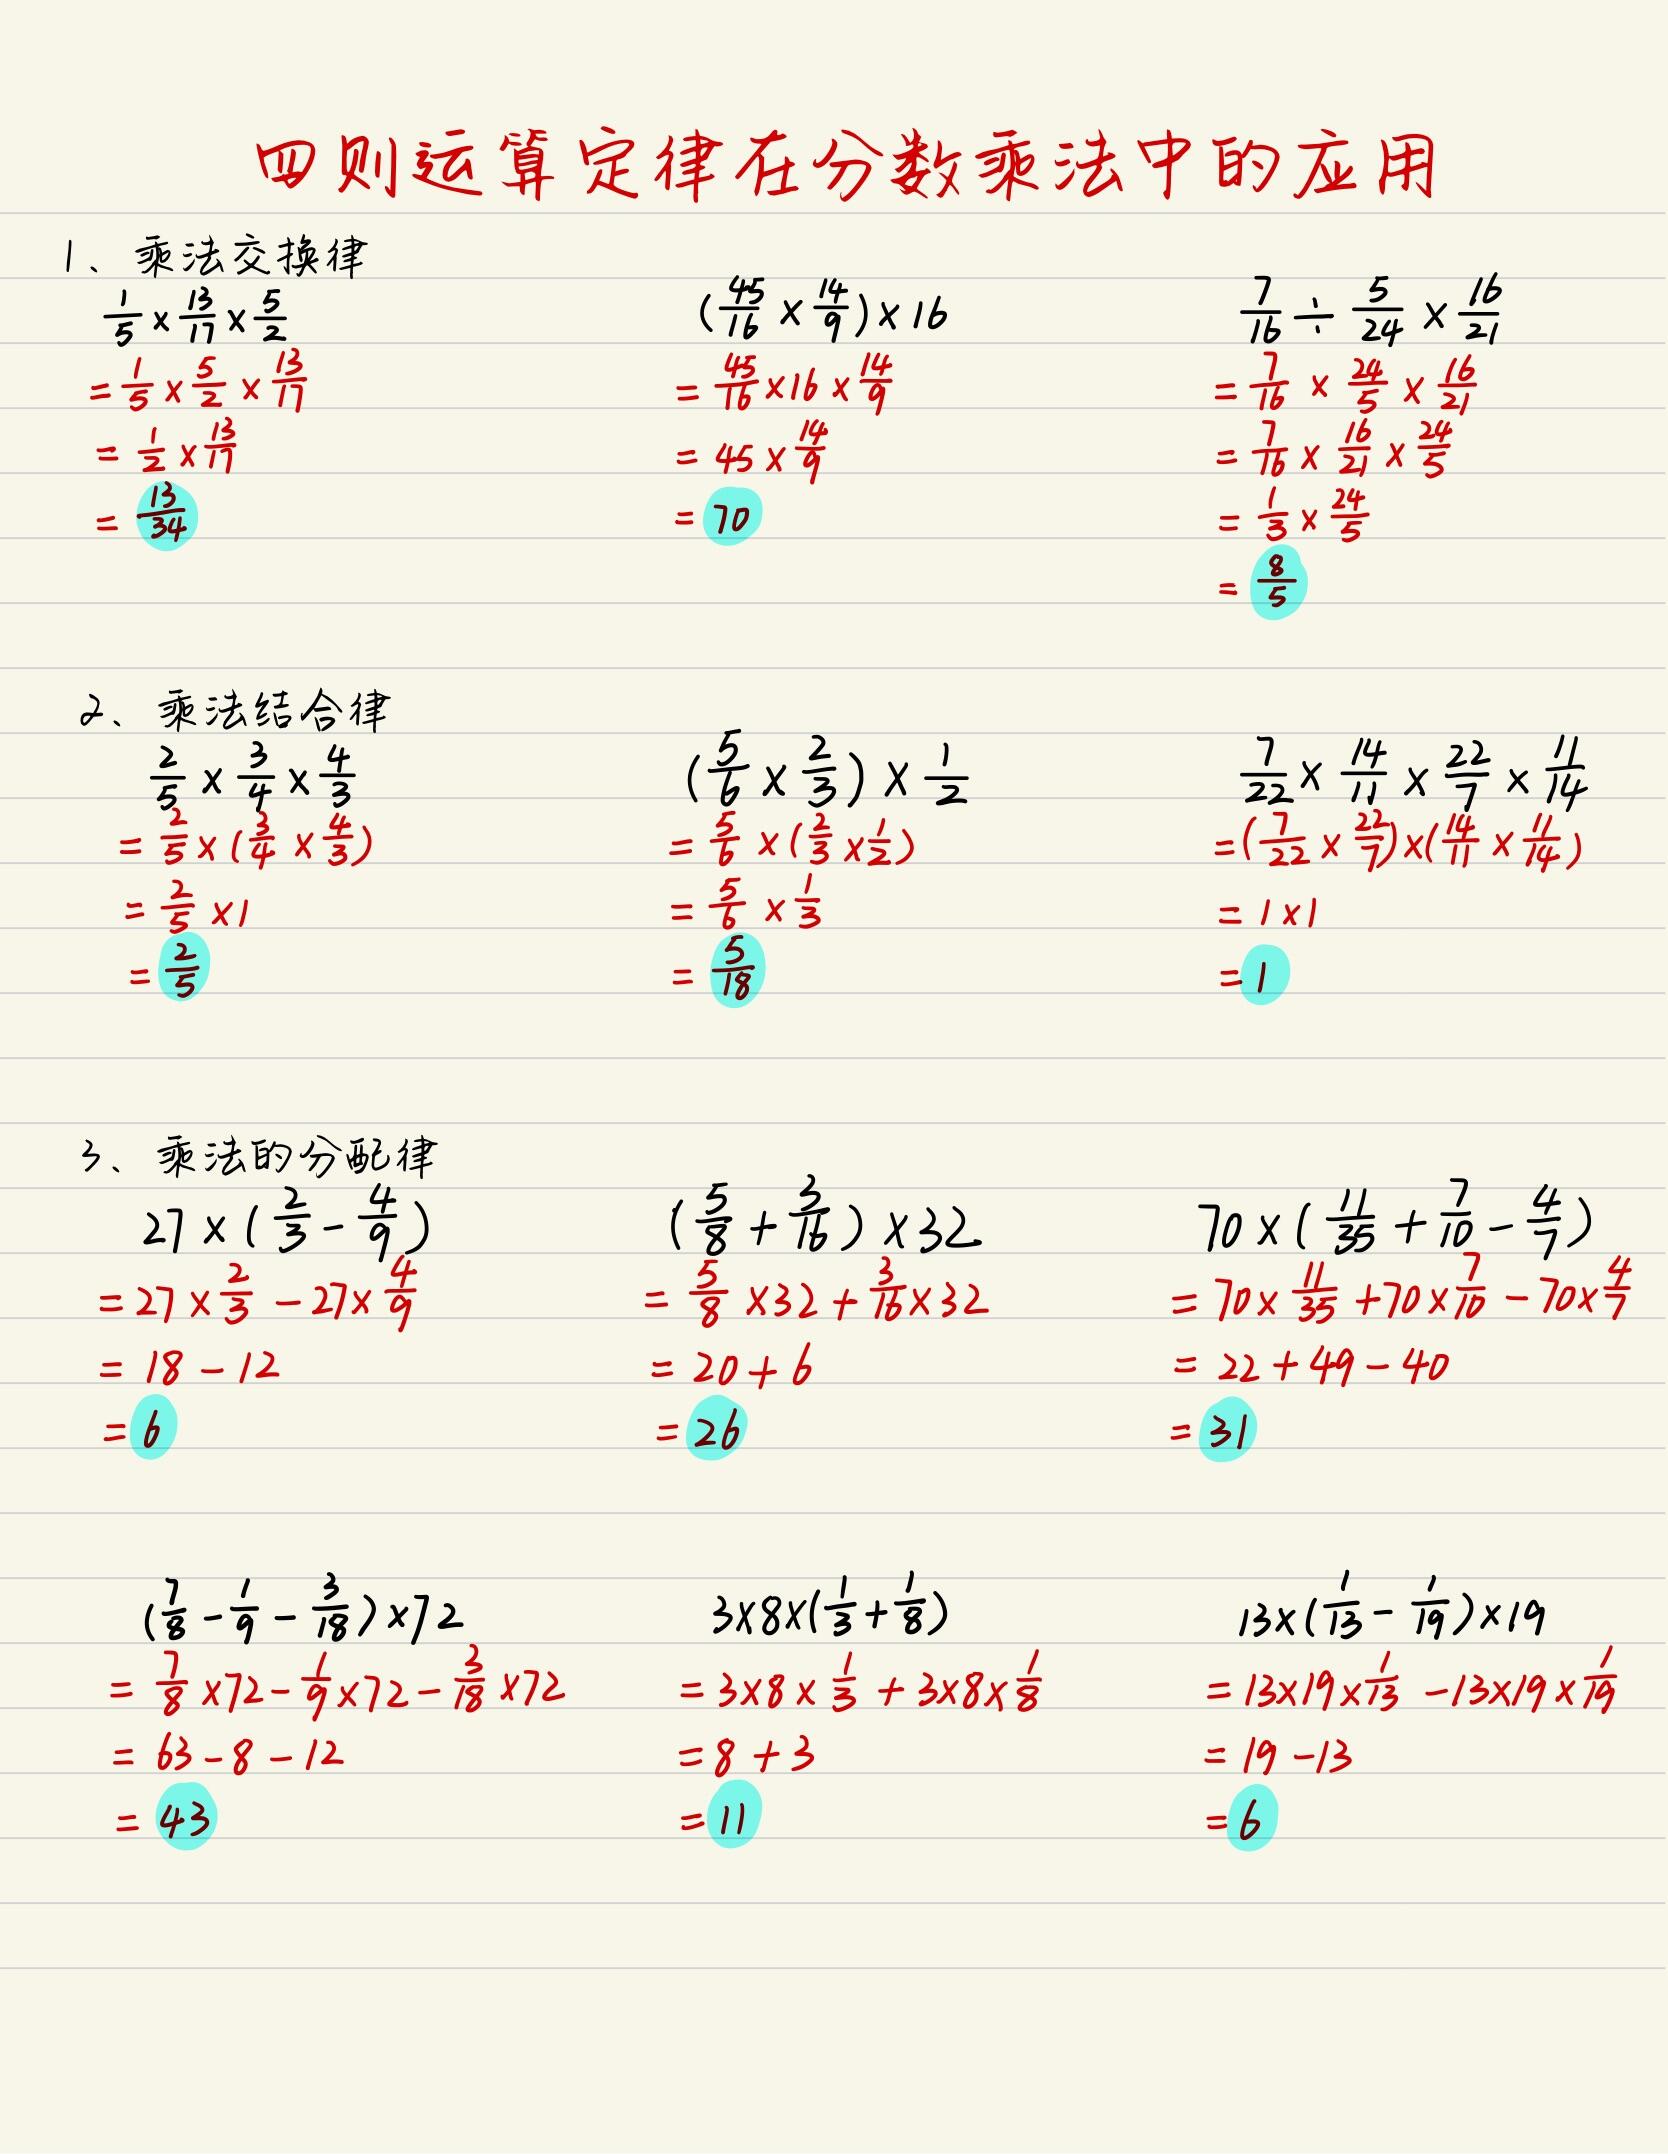 四则运算定律在分数乘法中的应用
1、乘法交换律
1/5 × 13/17 × 5/2
= 1/5 × 5/2 × 13/17
= 1/2 × 13/17
= 13/34
(45/16 × 14/9) × 16
= 45/16 × 16 × 14/9
= 45 × 14/9
= 70
7/16 ÷ 5/24 × 16/21
= 7/16 × 24/5 × 16/21
= 7/16 × 16/21 × 24/5
= 1/3 × 24/5
= 8/5
2、乘法结合律
2/5 × 3/4 × 4/3
= 2/5 × (3/4 × 4/3)
= 2/5 × 1
= 2/5
(5/6 × 2/3) × 1/2
= 5/6 × (2/3 × 1/2)
= 5/6 × 1/3
= 5/18
7/22 × 14/11 × 22/7 × 11/14
= (7/22 × 22/7) × (14/11 × 11/14)
= 1 × 1
= 1
3、乘法的分配律
27 × (2/3 - 4/9)
= 27 × 2/3 - 27 × 4/9
= 18 - 12
= 6
(5/8 + 3/16) × 32
= 5/8 × 32 + 3/16 × 32
= 20 + 6
= 26
70 × (11/35 + 7/10 - 4/7)
= 70 × 11/35 + 70 × 7/10 - 70 × 4/7
= 22 + 49 - 40
= 31
(7/8 - 1/9 - 3/18) × 72
= 7/8 × 72 - 1/9 × 72 - 3/18 × 72
= 63 - 8 - 12
= 43
3×8×(1/3 + 1/8)
= 3×8 × 1/3 + 3×8 × 1/8
= 8 + 3
= 11
13×(1/13 - 1/19)×19
= 13×19×1/13 - 13×19×1/19
= 19 - 13
= 6